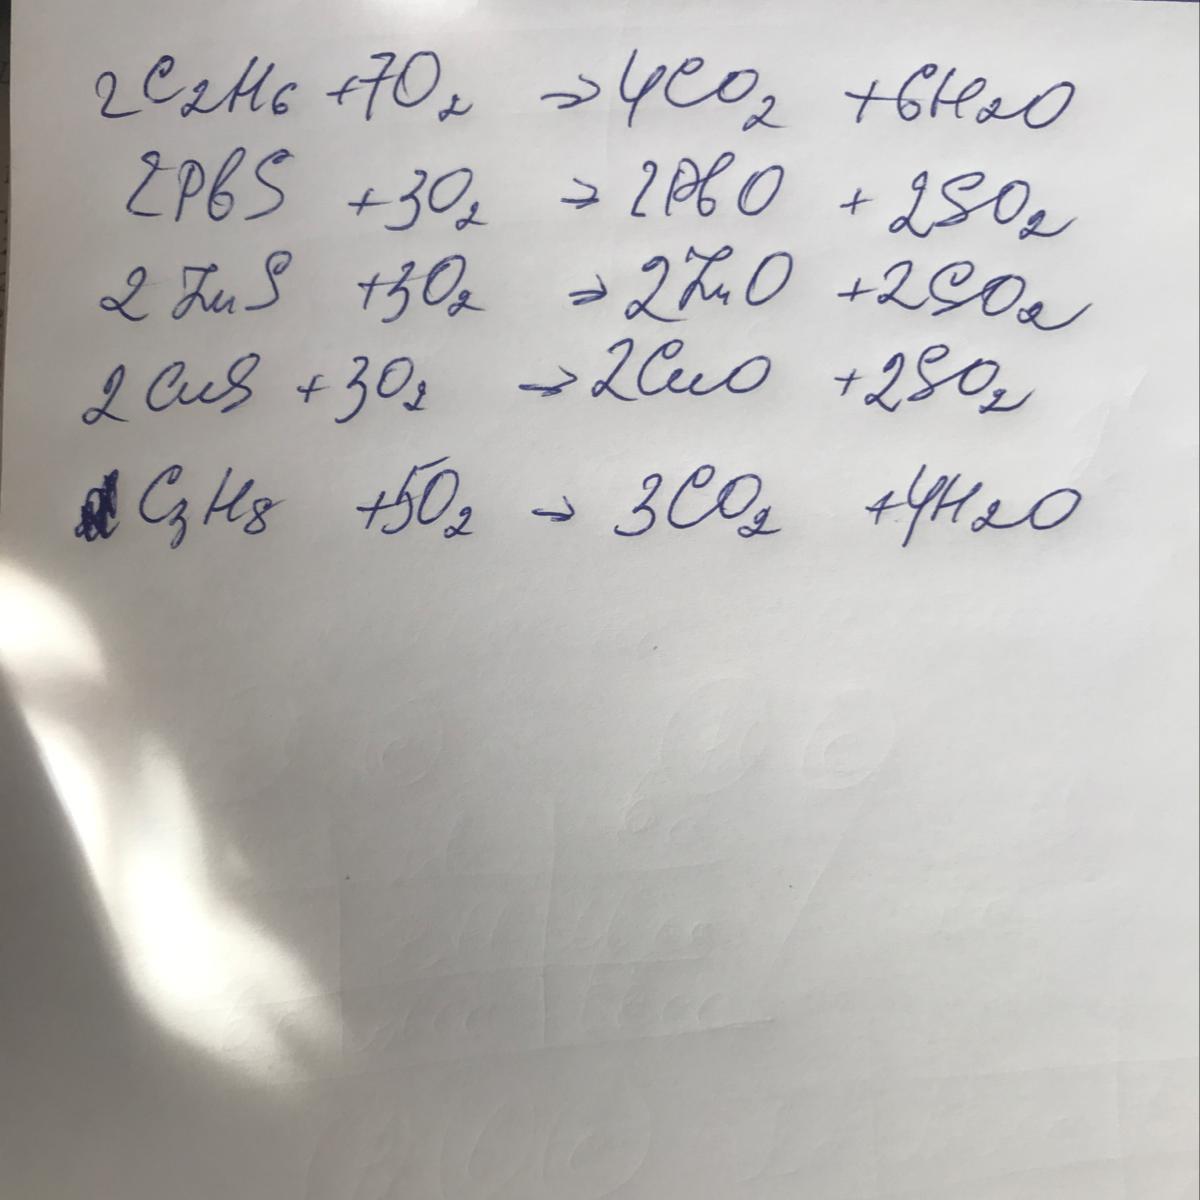 2C₂H₆ +7O₂ → 4CO₂ +6H₂O
2PbS +3O₂ → 2PbO + 2SO₂
2ZnS +3O₂ → 2ZnO +2SO₂
2CuS +3O₂ → 2CuO +2SO₂
C₃H₈ +5O₂ → 3CO₂ +4H₂O